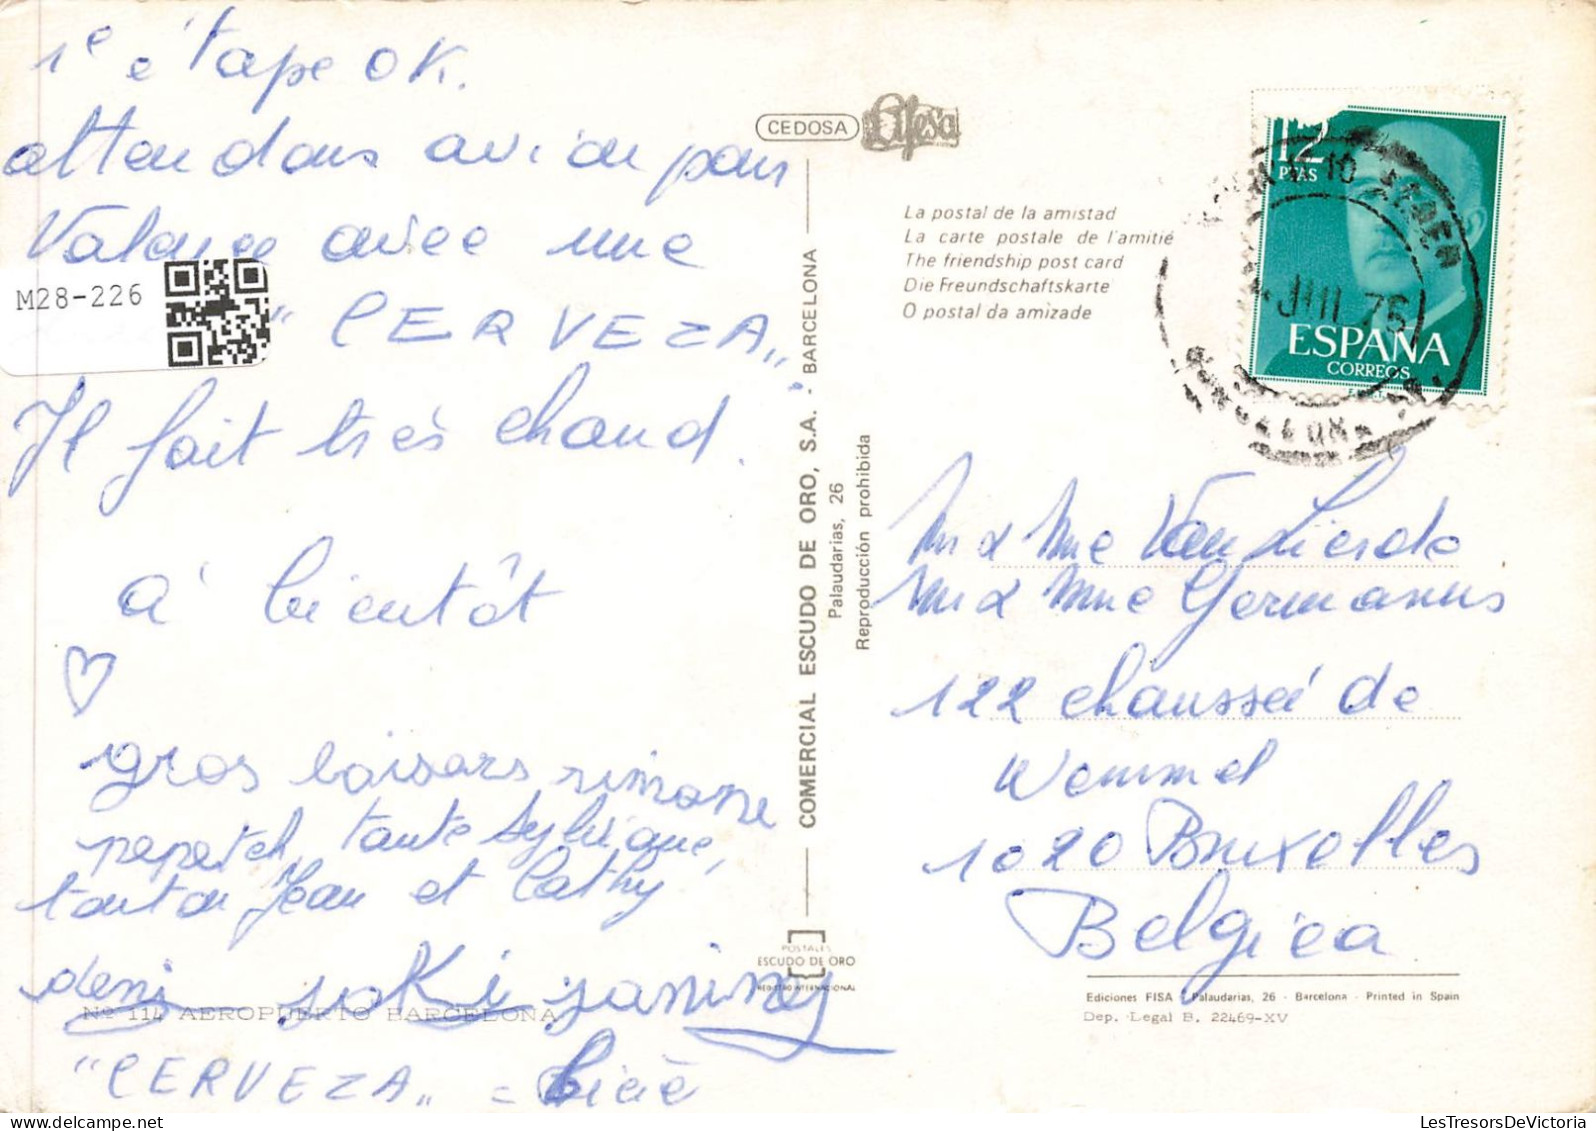 1e étape OK.
attendons avion pour
Valence avec une
" CERVEZA "
Il fait très chaud.
à bientôt
gros baisers simone
peperek, tante Sylvique,
tonton Jean et Cathy
deni joki janine
Nº 114 AEROPUERTO BARCELONA
"CERVEZA" = bière
M28-226
CEDOSA
COMERCIAL ESCUDO DE ORO, S.A. · BARCELONA
Palaudarias, 26
Reproducción prohibida
POSTALES
ESCUDO DE ORO
REGISTRO INTERNACIONAL
La postal de la amistad
La carte postale de l'amitié
The friendship post card
Die Freundschaftskarte
O postal da amizade
12
PTAS
ESPAÑA
CORREOS
JUL 75
Mr & Mme Van Lierde
Mr & Mme Germanus
122 chaussée de
Wemmel
1020 Bruxelles
Belgica
Ediciones FISA · Palaudarias, 26 - Barcelona - Printed in Spain
Dep. Legal B. 22469-XV
LesTresorsDeVictoria.com